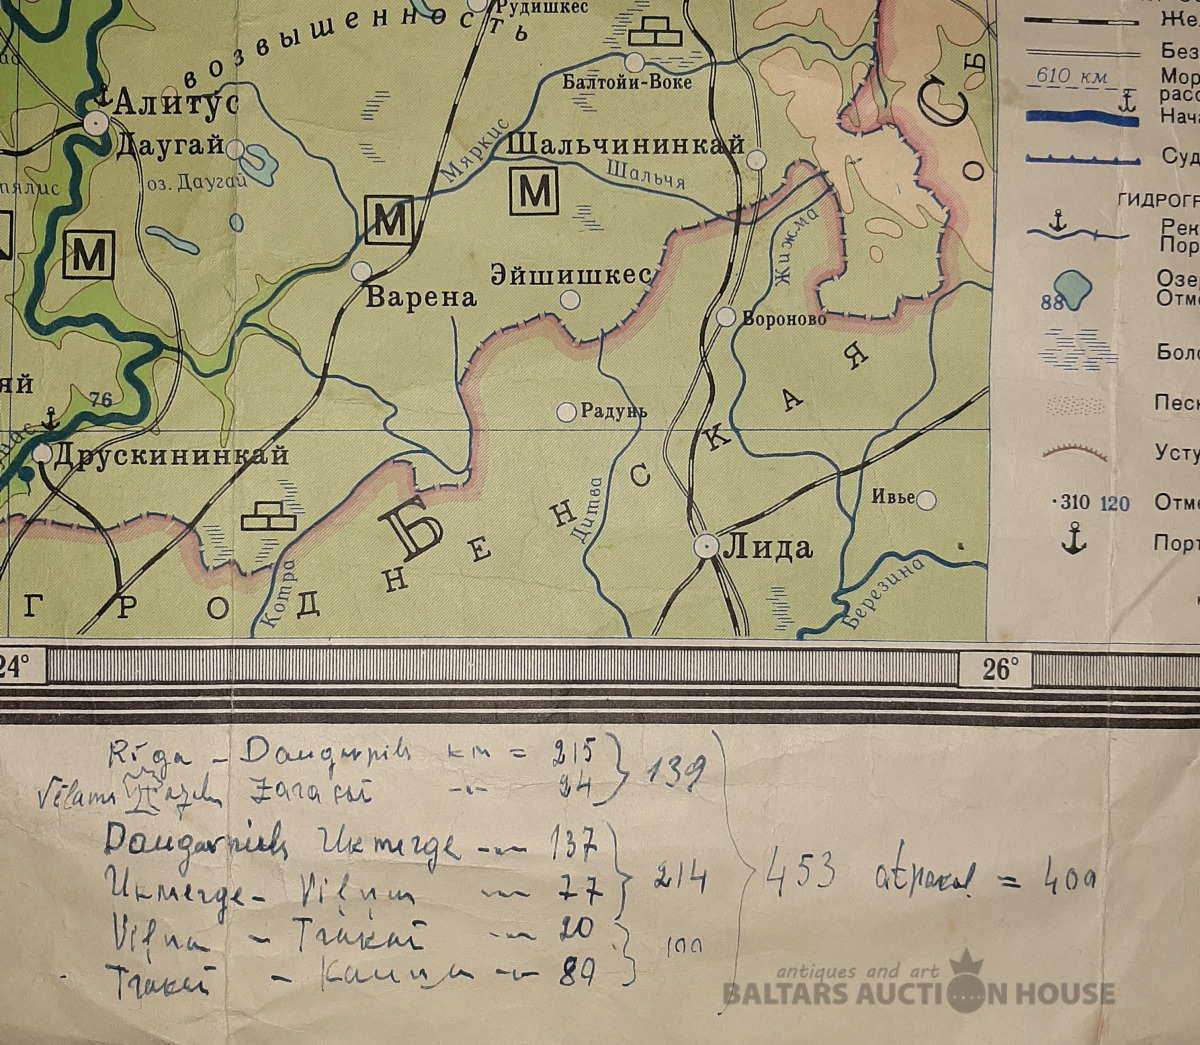 Рудишкес
возвышенность
Балтойи-Воке
Алитус
Даугай
оз. Даугай
Мяркис
Шальчининкай
Шальчя
М
М
М
Жижма
Эйшишкес
Варена
Вороново
76
Радунь
Друскининкай
Дитва
Ивье
Лида
Котра
Березина
ГРОДНЕНСКАЯ
Б
С
С
О
Б
24°
26°
Же
Без
610 км
Мор
расс
Нача
Суд
ГИДРОГР
Рек
Пор
Озе
88
Отме
Боло
Песк
Усту
·310 120
Отме
Порт
Rīga - Daugavpils km = 215
Zarasai 24 } 139
Daugavpils Ukmerge 137
Ukmerge - Viļņa 77 } 214
Viļņa - Trakai 20
Trakai - Kauņa 89 } 100
453 atpakaļ = 400
antiques and art
BALTARS AUCTION HOUSE